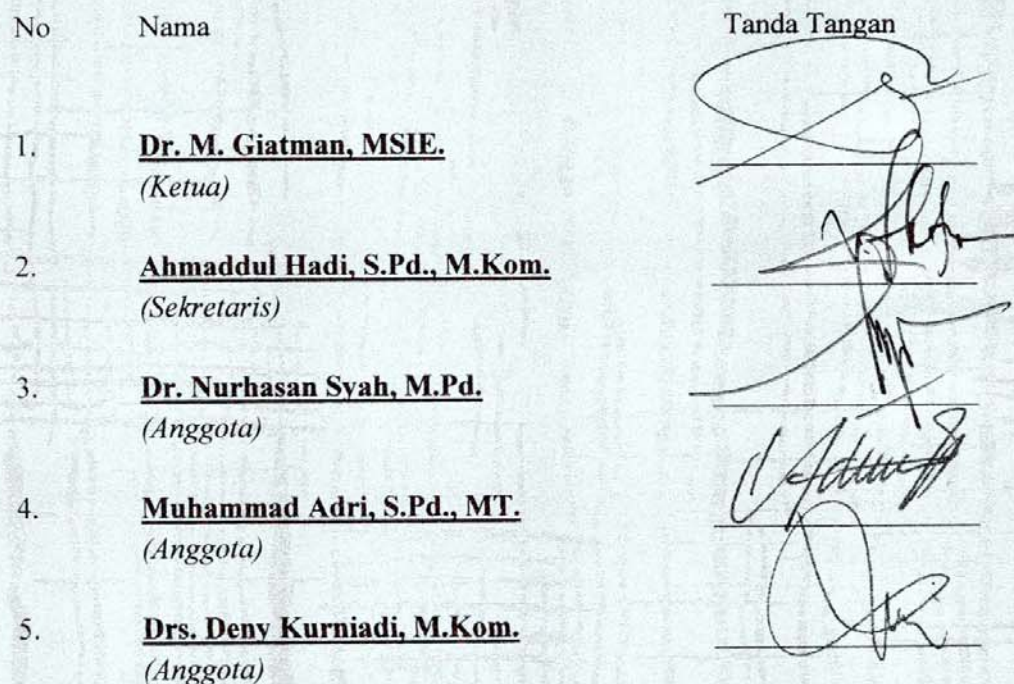 No Nama Tanda Tangan
1. Dr. M. Giatman, MSIE.
(Ketua)
2. Ahmaddul Hadi, S.Pd., M.Kom.
(Sekretaris)
3. Dr. Nurhasan Syah, M.Pd.
(Anggota)
4. Muhammad Adri, S.Pd., MT.
(Anggota)
5. Drs. Deny Kurniadi, M.Kom.
(Anggota)